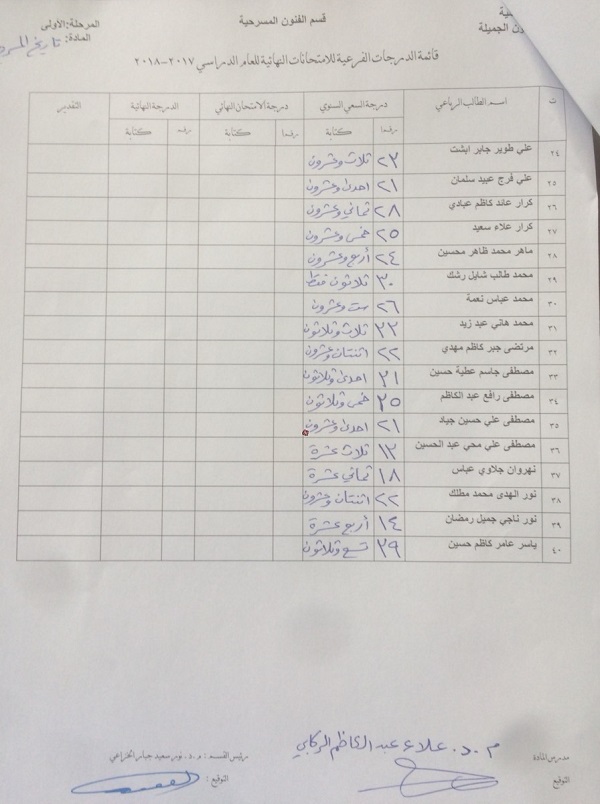 قسم الفنون المسرحية
المرحلة: الاولى
الجميلة
المادة: تاريخ
قائمة الدرجات الفرعية للامتحانات النهائية للعام الدراسي ٢٠١٧-٢٠١٨
ت اسم الطالب الرباعي درجة السعي السنوي درجة الامتحان النهائي الدرجة النهائية التقدير
رقما كتابة رقما كتابة رقما كتابة
٢٤ علي طوير جابر ابشت ٢٣ ثلاث وعشرون
٢٥ علي فرج عبيد سلمان ٢١ احدى وعشرون
٢٦ كرار عائد كاظم عبادي ٢٨ ثماني وعشرون
٢٧ كرار علاء سعيد ٢٥ خمس وعشرون
٢٨ ماهر محمد ظاهر محسين ٢٤ أربع وعشرون
٢٩ محمد طالب شايل رشك ٣٠ ثلاثون فقط
٣٠ محمد عباس نعمة ٢٦ ست وعشرون
٣١ محمد هاني عبد زيد ٣٣ ثلاث وثلاثون
٣٢ مرتضى جبر كاظم مهدي ٢٢ اثنتان وعشرون
٣٣ مصطفى جاسم عطية حسين ٣١ احدى وثلاثون
٣٤ مصطفى رافع عبد الكاظم ٣٥ خمس وثلاثون
٣٥ مصطفى علي حسين جياد ٢١ احدى وعشرون
٣٦ مصطفى علي محي عبد الحسين ١٣ ثلاث عشرة
٣٧ نهروان جلاوي عباس ١٨ ثماني عشرة
٣٨ نور الهدى محمد مطلك ٢٢ اثنتان وعشرون
٣٩ نور ناجي جميل رمضان ١٤ أربع عشرة
٤٠ ياسر عامر كاظم حسين ٣٩ تسع وثلاثون
م.د. علاء عبد الكاظم الركابي
مدرس المادة
رئيس القسم: م.د. نور سعيد جبار الخزاعي
التوقيع
التوقيع: